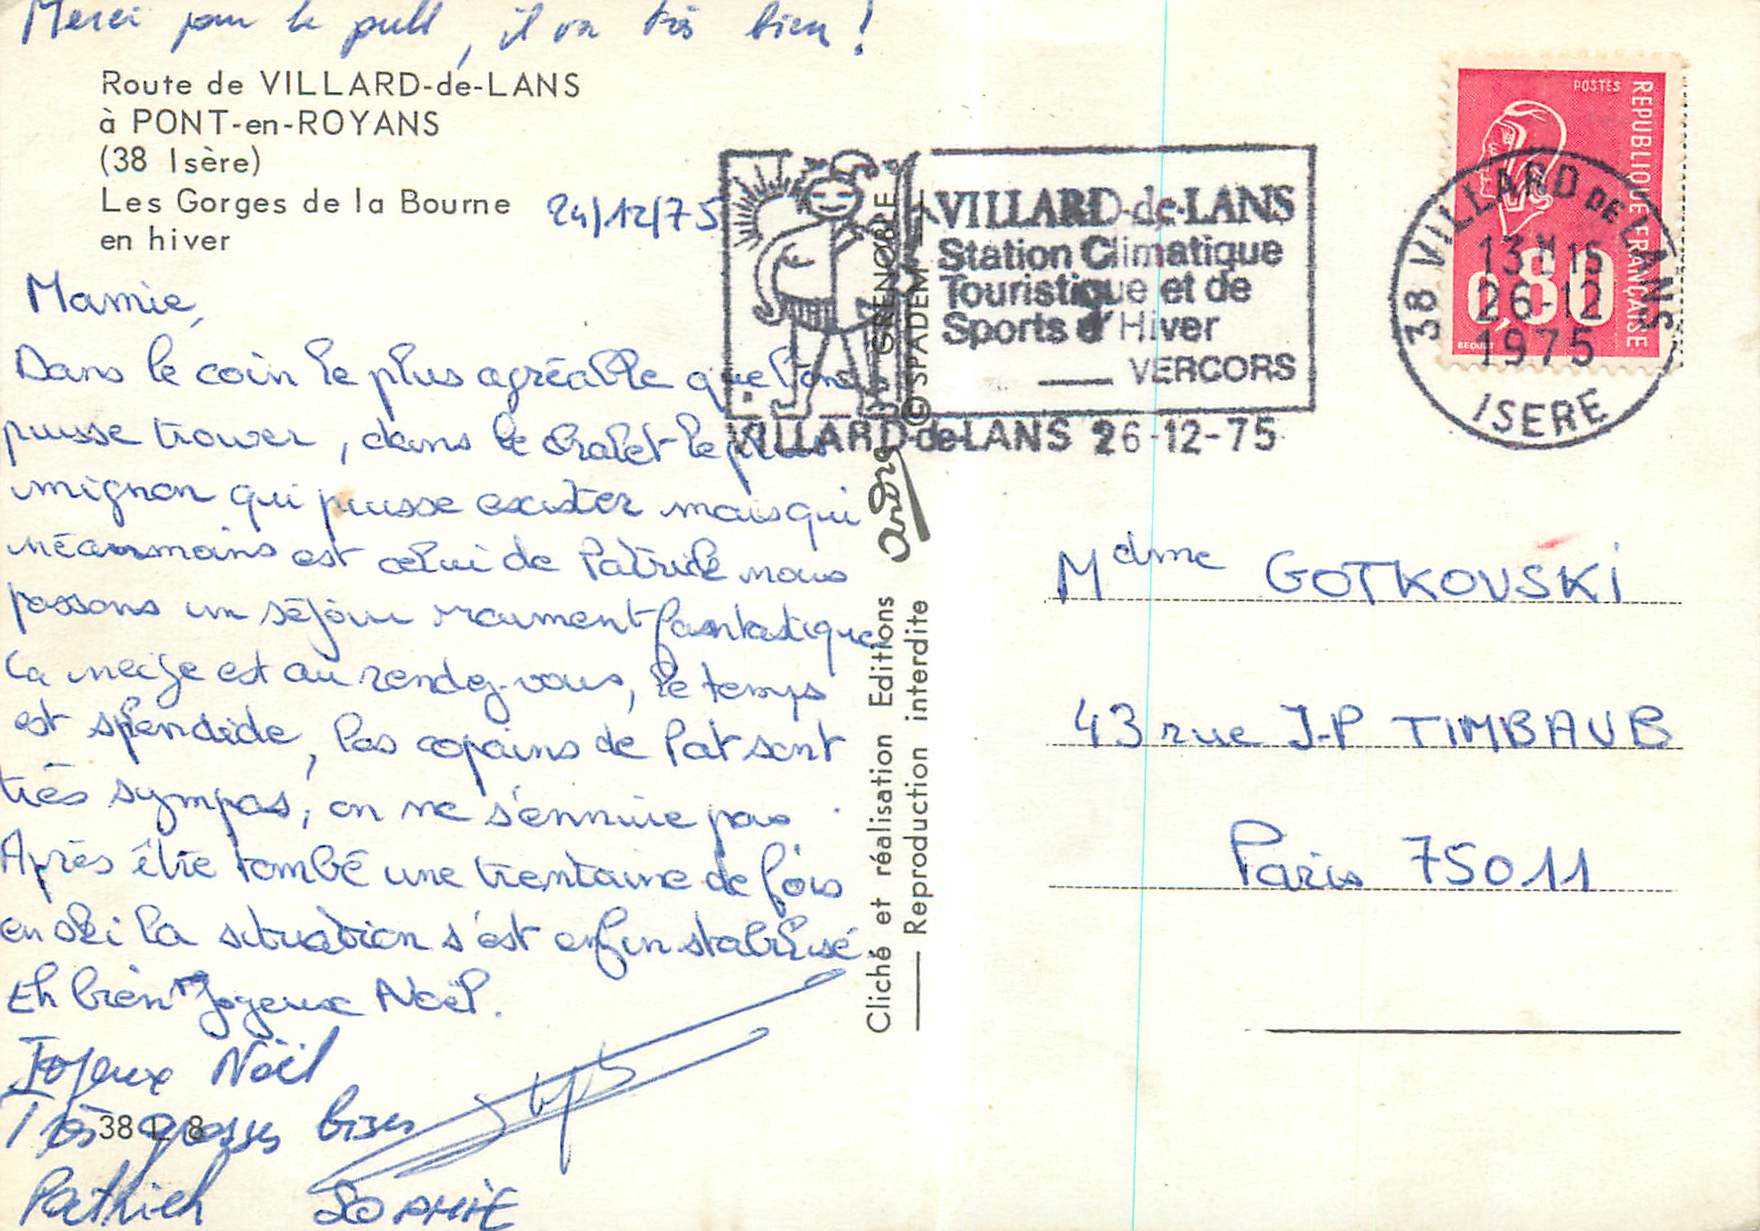 Merci pour le pull, il va très bien !
Route de VILLARD-de-LANS
à PONT-en-ROYANS
(38 Isère)
Les Gorges de la Bourne
en hiver
24/12/75
Mamie,
Dans le coin le plus agréable que l'on
puisse trouver, dans le chalet le plus
mignon qui puisse exister mais qui
néanmoins est celui de Patrick nous
passons un séjour vraiment fantastique
la neige est au rendez-vous, le temps
est splendide, les copains de Pat sont
très sympas, on ne s'ennuie pas.
Après être tombé une trentaine de fois
en ski la situation s'est enfin stabilisé.
Eh bien Joyeux Noël.
Joyeux Noël
Très grosses bises
38 L 8
Patrick SOPHIE
Cliché et réalisation Editions André GRENOBLE
Reproduction interdite © SPADEM
VILLARD-de-LANS
Station Climatique
Touristique et de
Sports d'Hiver
VERCORS
VILLARD-de-LANS 26-12-75
POSTES
REPUBLIQUE FRANÇAISE
0,80
BEQUET
38 VILLARD DE LANS
13H15
26-12
1975
ISERE
Mdme GOTKOVSKI
43 rue J-P TIMBAUB
Paris 75011